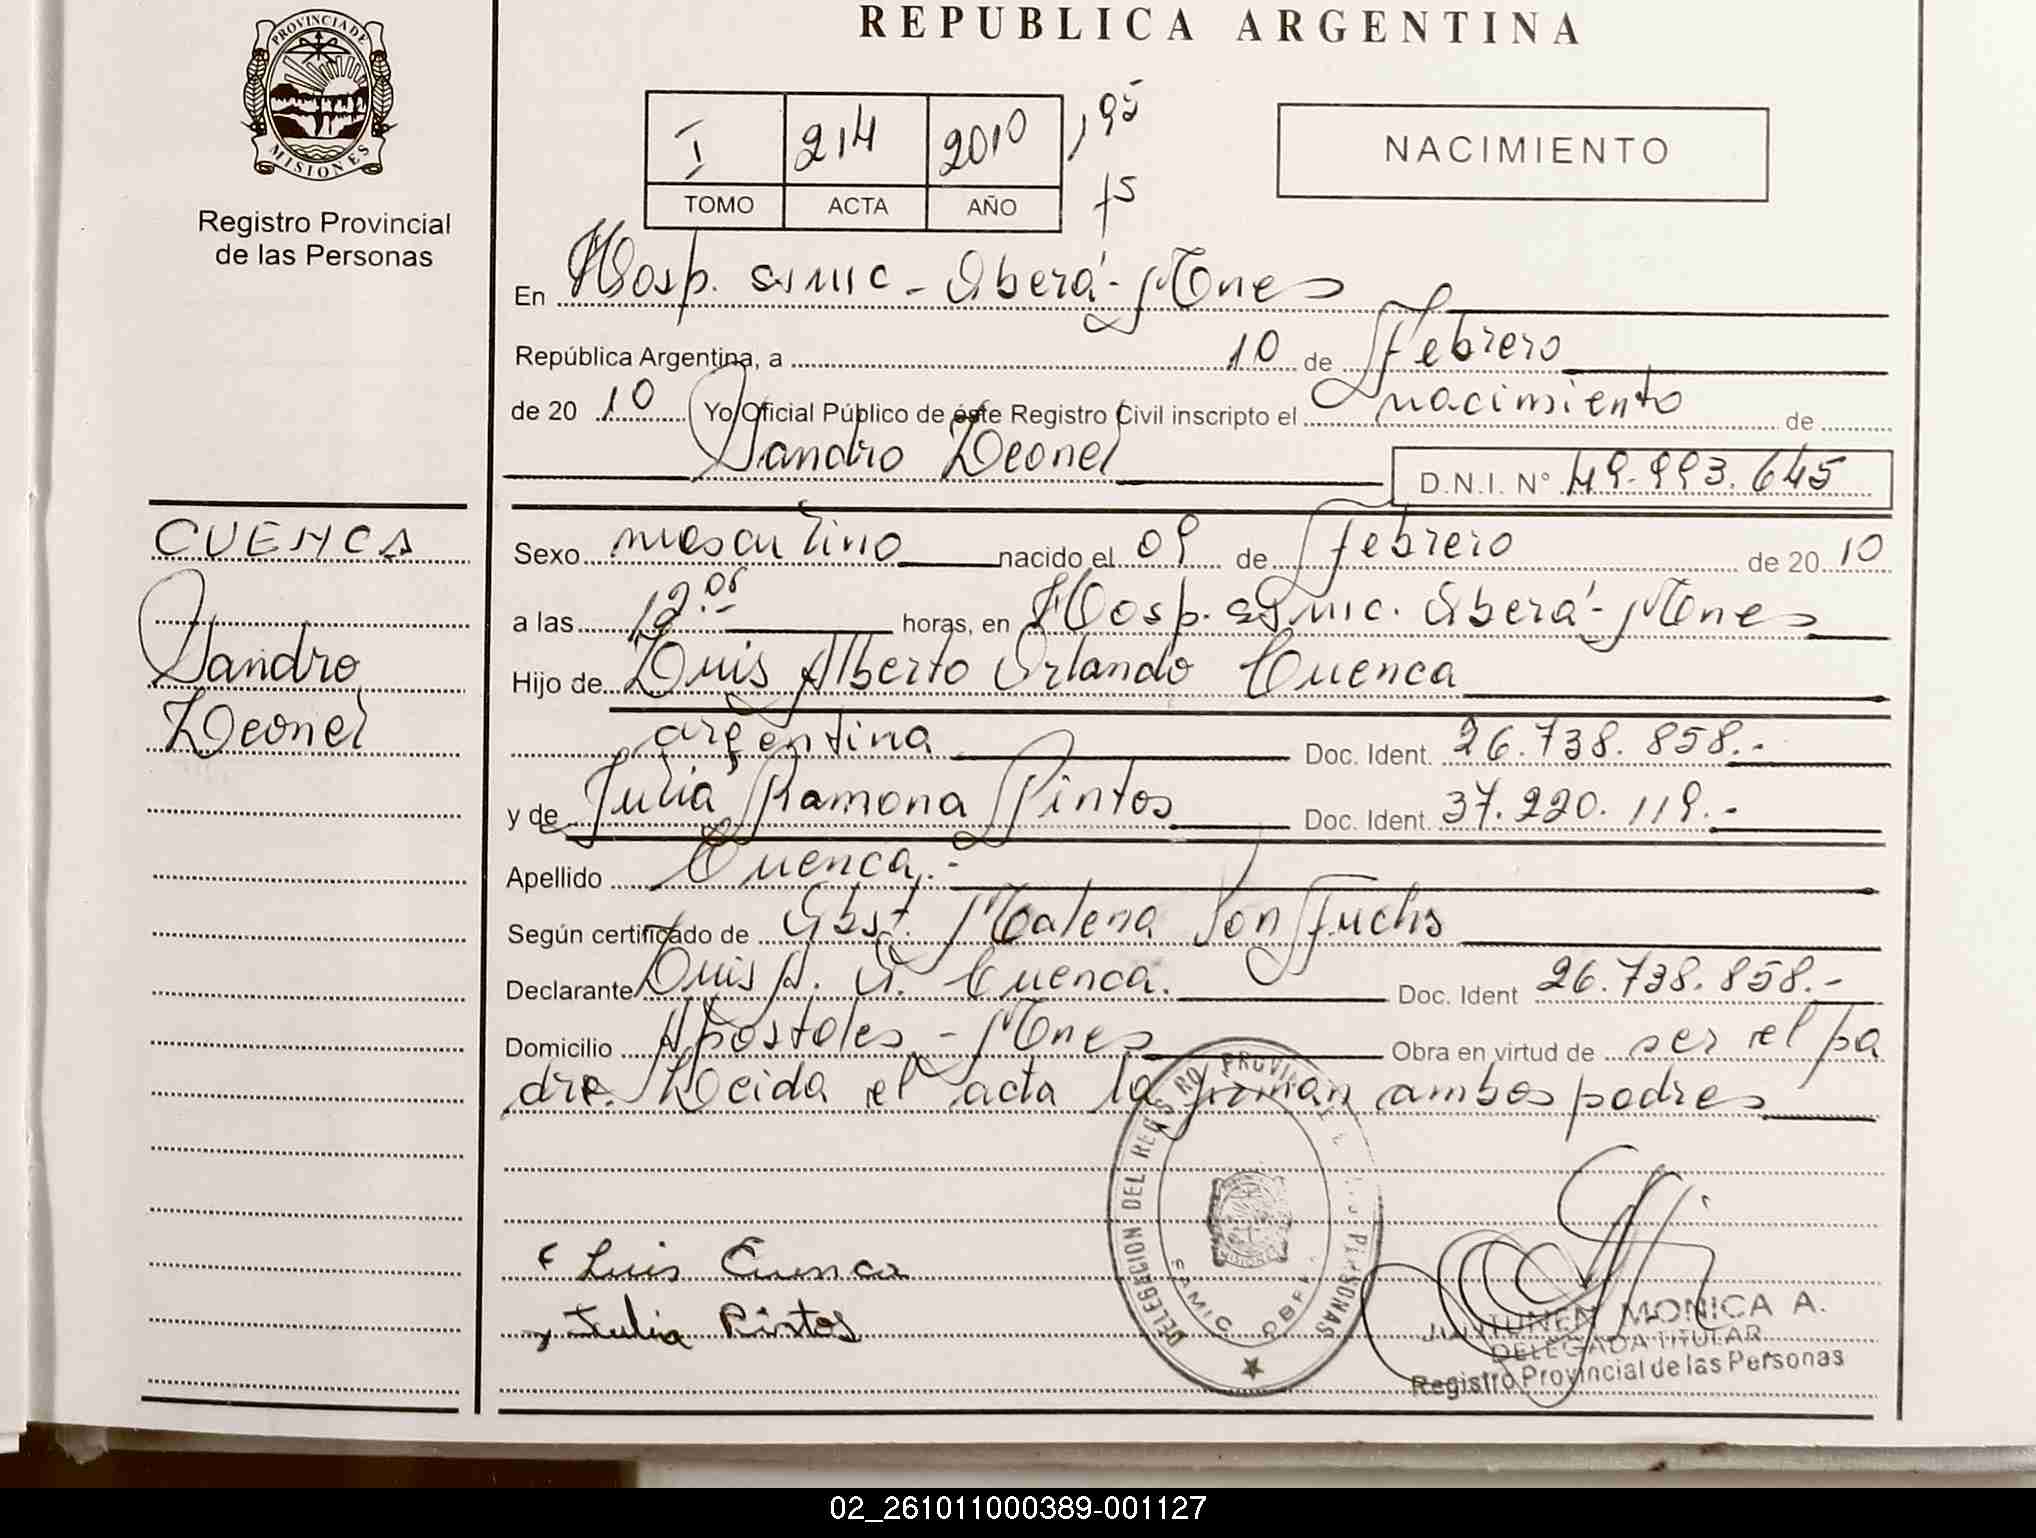 REPUBLICA ARGENTINA
PROVINCIA DE MISIONES
Registro Provincial
de las Personas
I 214 2010 , 95
TOMO ACTA AÑO fs
NACIMIENTO
En Hosp. SAMIC - Oberá - Mnes
República Argentina, a 10 de Febrero
de 20 10 Yo Oficial Público de éste Registro Civil inscripto el nacimiento de
Sandro Leonel D.N.I. N° 49.993.645
CUENCA
Sandro
Leonel
Sexo masculino nacido el 09 de febrero de 20 10
a las 12.05 horas, en Hosp. SAMIC. Oberá - Mnes
Hijo de Luis Alberto Orlando Cuenca
argentina Doc. Ident. 26.738.858.-
y de Julia Ramona Pintos Doc. Ident. 37.220.119.-
Apellido Cuenca.-
Según certificado de Obst. Malena Von Fuchs
Declarante Luis A. O. Cuenca. Doc. Ident 26.738.858.-
Domicilio Apostoles - Mnes Obra en virtud de ser el pa
dre. Leida el acta la firman ambos padres
Luis Cuenca
Julia Pintos
DELEGACION DEL REGISTRO PROVINCIAL PERSONAS
SAMIC OBERA
MONICA A.
DELEGADA TITULAR
Registro Provincial de las Personas
02_261011000389-001127